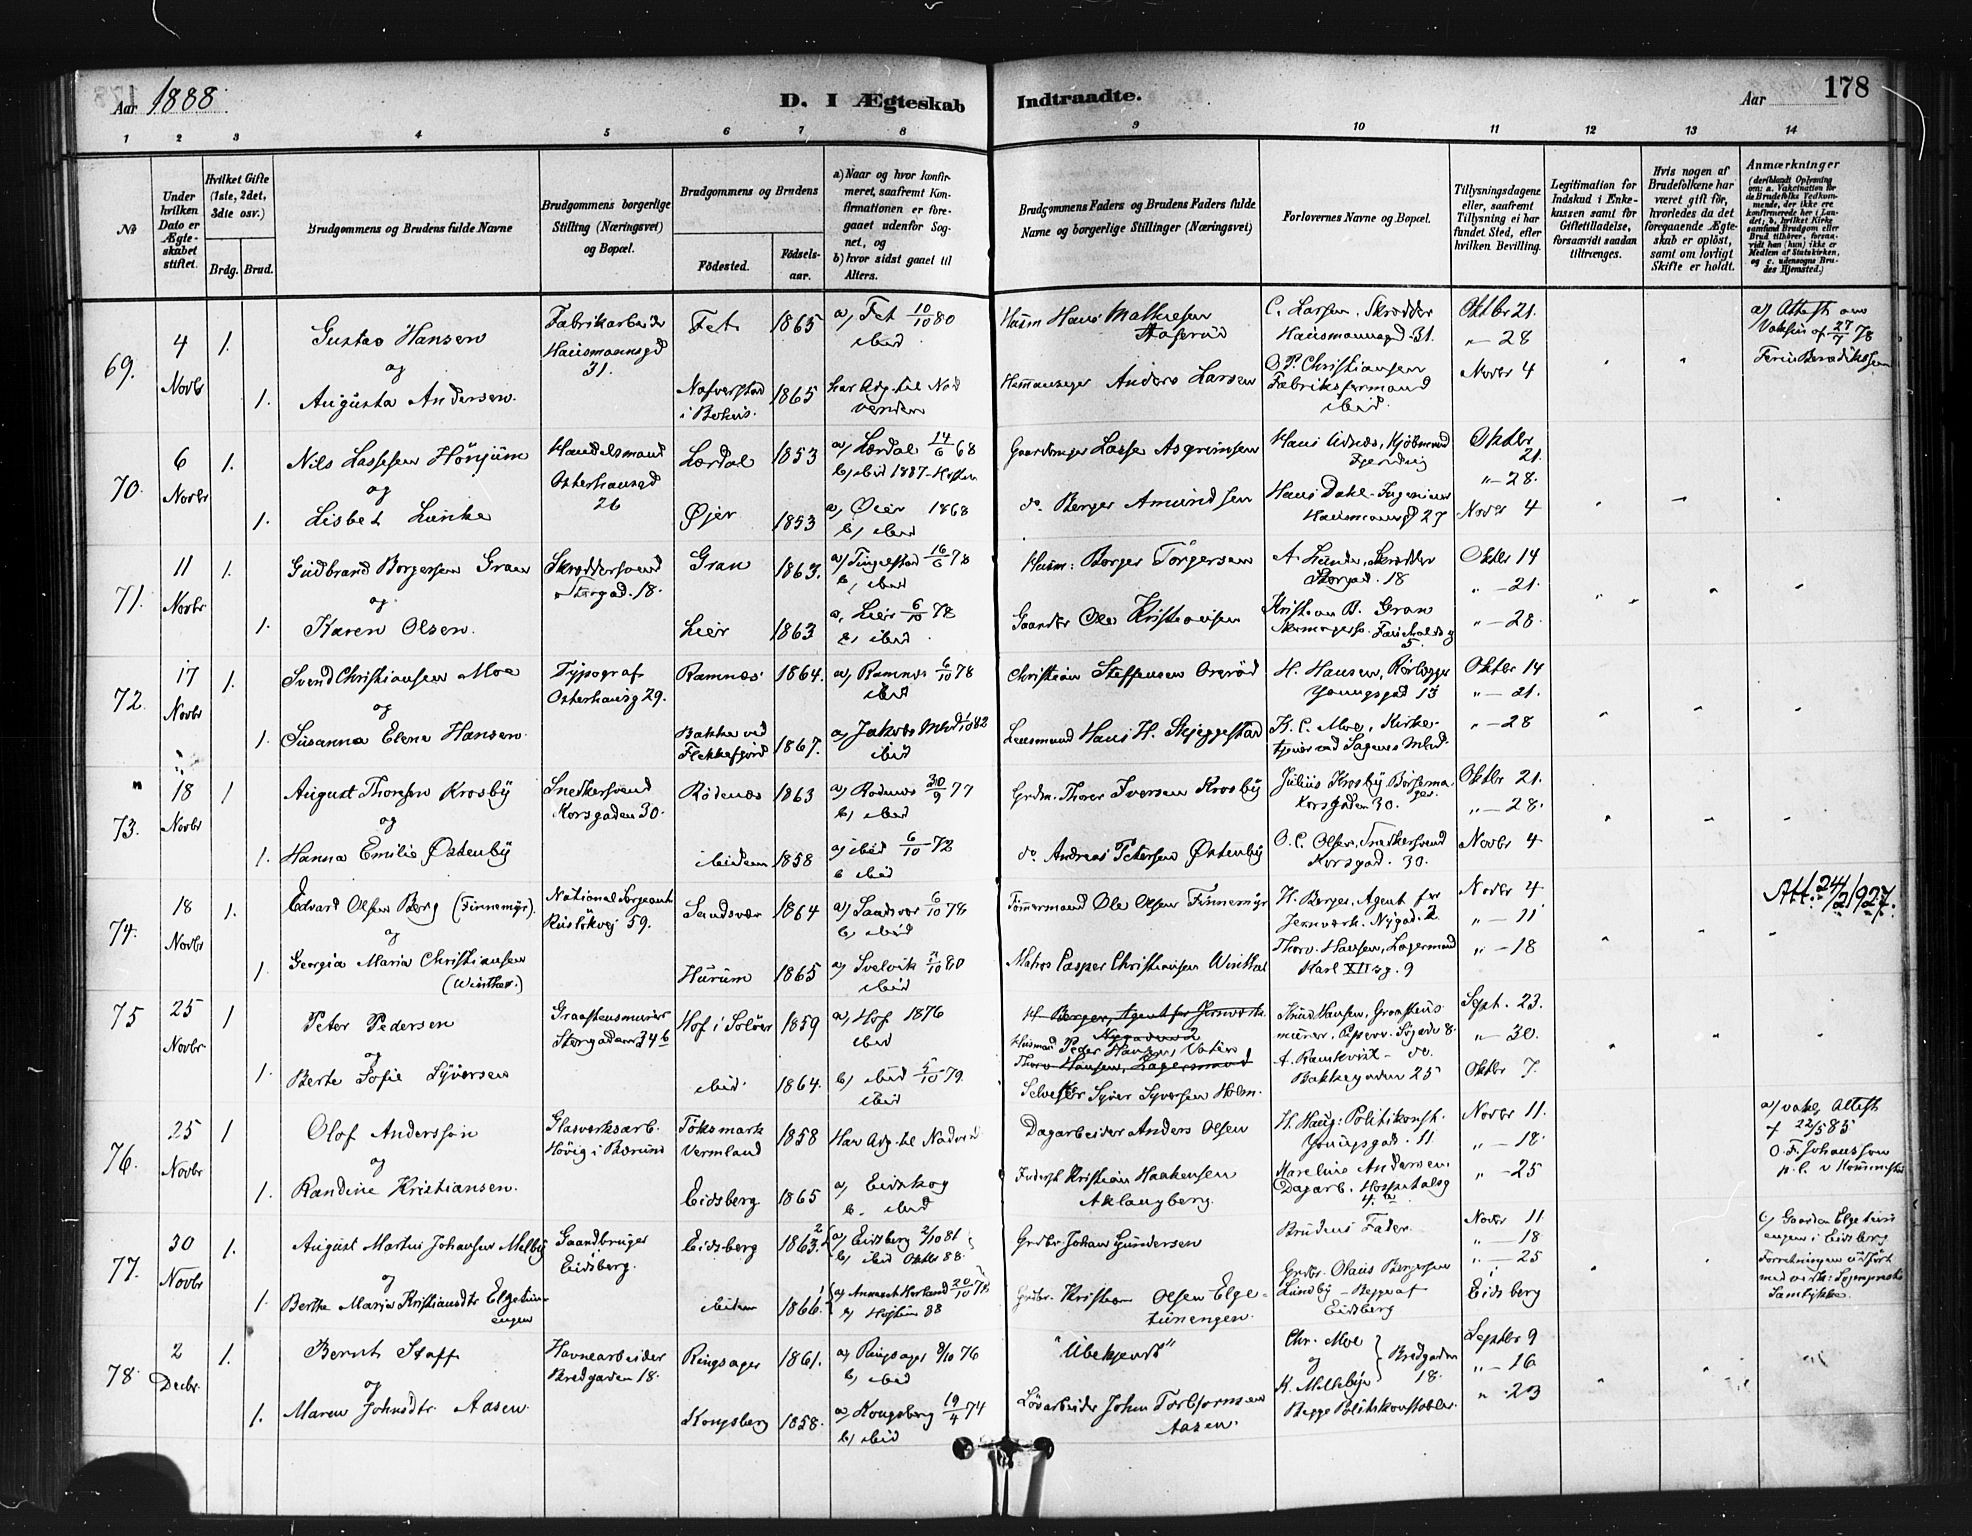 Aar 1888. D. I Ægteskab Indtraadte. Aar 178
1 2 3 4 5 6 7 8 9 10 11 12 13 14
No
Under hvilken Dato er Ægteskabet stiftet.
Hvilket Gifte (1ste, 2det, 3die osv.)
Brdg. Brud.
Brudgommens og Brudens fulde Navne
Brudgommens borgerlige Stilling (Næringsvei) og Bopæl.
Brudgommens og Brudens
Fødested. Fødselsaar.
a) Naar og hvor konfirmeret, saafremt Konfirmationen er foregaaet udenfor Sognet, og
b) hvor sidst gaaet til Alters.
Brudgommens Faders og Brudens Faders fulde Navne og borgerlige Stillinger (Næringsvei)
Forlovernes Navne og Bopæl.
Tillysningsdagene eller, saafremt Tillysning ei har fundet Sted, efter hvilken Bevilling.
Legitimation for Indskud i Enkekassen samt for Giftetilladelse, forsaavidt saadan tiltrænges.
Hvis nogen af Brudefolkene har været gift før, hvorledes da det foregaaende Ægteskab er opløst, samt om lovligt Skifte er holdt.
Anmærkninger
69. 4 Novbr 1. Gustav Hansen Fabrikarbeider Hausmannsgd 31. Fet 1865 a) Fet 10/10 80 ibid Husm Hans Mathiesen C. Larsen, Skrædder Hausmannsgd. 31. Oktbr 21. " - 28 a) Attest om Vaksin af 27/7 78
og
1. Augusta Andersen. i Bohus. 1865 har Adg. til Nadverden Anders Larsen O. P. Christiansen Fabriksformand ibid. Novbr 4
70. 6 Novbr 1. Nils Lassesen Hönjum Handelsmand Osterhausgd 26 Lærdal 1853 a) Lærdal 14/6 68 b) ibid 1887 - Høsten Lasse Asgrimsen Oktbr 21. " - 28.
og
1. Lisbet Lunke Øjer 1853 a) Øier 1868 b) ibid do Berger Amundsen Hans Dahl - Ingeniør Hausmannsgd 27 Novbr 4
71. 11 Novbr 1. Gudbrand Borgersen Gran Skræddersvend Storgad. 18. Gran 1863. a) Tingelstad 16/6 78 b) ibid Husm: Borger Torgersen A. Lunde, Skrædder Storgad. 18 Oktbr 14 " - 21.
og
1. Karen Olsen. Lier 1863 a) Lier 6/10 78 b) ibid Ole Kristiansen Kristian B. Gran 5. " - 28.
72. 17 Novbr 1. Svend Christiansen Moe Typograf Osterhausg 29. Ramnæs 1864. a) Ramnæs 6/10 78 ibid Christian Steffensen H. Hansen, Rörlægger Youngsgad 13 Oktbr 14 " - 21.
og
1. Susanna Elena Hansen. Bakke ved Flekkefjord 1867. a) Jakobs ibid Lensmand Hans H. Skjeggestad K. C. Moe, Kirketjener ved Sagenes " - 28
73. 18 Novbr 1 August Thorsen Krosby Snedkersvend Korsgaden 30. Rödenæs 1863 a) Rödenæs 30/9 77 b) ibid Grdm. Thorer Iversen Krosby Julius Krosby Börsemager. Korsgaden 30. Oktbr 21. " - 28.
og
1. Hanna Emilie Østenby ibidem 1858 a) ibid 6/10 72 b ibid do Andreas Petersen Østenby O. C. Olsen, Snedkersvend Korsgad. 30. Novbr 4
74. 18 Novbr 1. Edvard Olsen Berg (Finnemyr). Nationalsergeant Ruslökvej 59. Sandsvær 1864 a) Sandsvær 6/10 78 b) ibid Tömmermand Ole Olsen Finnemyr H. Berger, Agent for Jernværk. Nygad. 2 Novbr 4 " - 11 Att. 24/2 1927.
og
1 Georgia Maria Christiansen (Winther.) Hurum 1865 a) Svelvik 80 ibid Matros Casper Christiansen Winther Thorv. Hansen, Lagermand Karl XII sg. 9 " - 18
75 25 Novbr. 1 Peter Pedersen Graastensmurer Storgaden 34 b Hof i Solöer 1859 a) Hof 1876 ibid H. Berger, Agent for Jernværk. Nygaden 2 Husmand Peder Hansen Knud Hansen, Graastensmurer, Sept. 23. " - 30.
og
1. Berte Sofie Syversen ibid. 1864. b) ibid 5/10 79. ibid Thorv Hansen, Lagermand Syver Syversen Holm. A. Rauskvist - do. Bakkegaden 25 Oktbr 7.
76. 25 Novbr 1 Olof Andersson Glasværksarb. Hövig i Bærum Töksmark Vermland 1858 Har Adg. til Nadverd Dagarbeider Anders Olsen H. Haug: Politikonst. Youngsgad. 11 Novbr 11. " - 18. a) vaks. Attest f 22/5 85 O. F. Johansson
og
1. Randine Kristiansen. Eidsberg 1865 a) Eidskog b. ibid Kristian Haakensen Aklangberg. Mareline Andersen. Dagarb. Hospitalsg 4.a " - 25
77. 30 Novbr 1. August Martin Johansen Melby Gaardbruger Eidsberg. Eidsberg 1863. a) Eidsberg 2/10 81 b) ibid Oktbr 88. Grdbr Johan Gundersen Brudens Fader. Novbr 11 " - 18 " - 25 c) Gaarden Elgetunengen i Eidsberg
og
1. Berthe Maria Kristiansdtr Elgetunengen ibidem 1866. 20/10 78 b) Høsten 88 Grdbr. Kristian Olsen Elgetunengen. Grdbr. Olaus Bergersen Lundby - Begge af Eidsberg i Eidsberg Forretningen udført med
78. 2 Decbr. 1. Bernt Staff Havnearbeider Bredgaden 18. Ringsager 1861. a) Ringsager 8/10 76 b) ibid "Ubekjendt" Chr. Moe og Bredgaden 18. Septbr 9 " - 16
og
1. Maren Johnsdtr Aasen. Kongsberg 1858. a) Kongsberg 19/4 74 b) ibid John Torbjörnsen Aasen. K. Melleby Begge Politikonstabler. " - 23